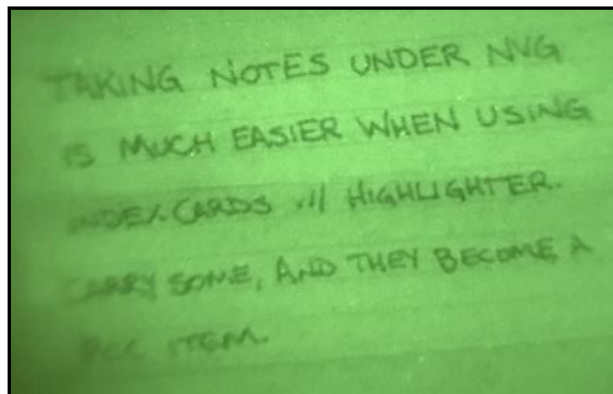 TAKING NOTES UNDER NVG
IS MUCH EASIER WHEN USING
INDEX CARDS w/ HIGHLIGHTER.
CARRY SOME, AND THEY BECOME A
PCC ITEM.